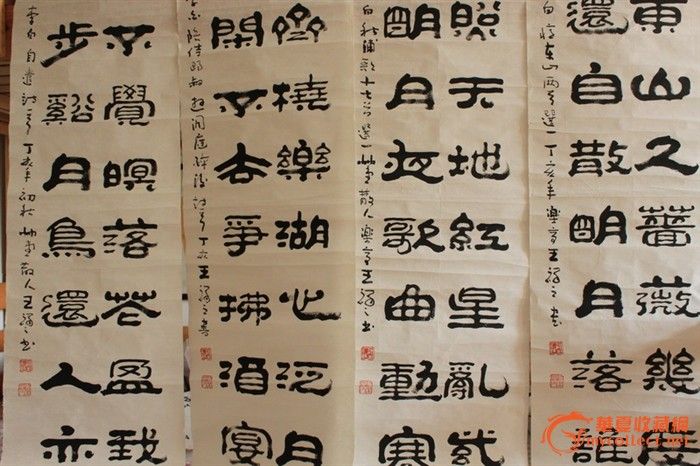 東山久薔薇幾度
還自散明月落誰
白憶東山兩首選一丁亥年樂亭王之書
照天地紅星亂紫
明月夜歌曲動寒
白秋浦歌十七首選一艸堂散人樂亭王之书
齊橈樂湖心泛月
閑不去爭拂酒宴
白陪侍郎叔遊洞庭醉後詩首丁亥王之書
不覺暝落花盈我
步谿月鳥還人亦
李白自遣詩一首丁亥年初秋艸堂散人王之书
华夏收藏網